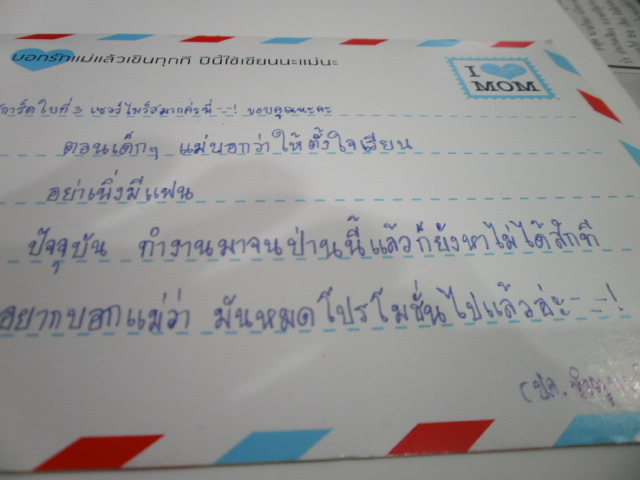 บอกรักแม่แล้วเขินทุกที ปีนี้ใช้เขียนนะแม่นะ
I
MOM
การ์ดใบที่ 3 เซอร์ไพร์สมากค่ะพี่ -=-! ขอบคุณนะคะ
ตอนเด็กๆ แม่บอกว่าให้ตั้งใจเรียน
อย่าเพิ่งมีแฟน
ปัจจุบัน ทำงานมาจนป่านนี้แล้วก็ยังหาไม่ได้สักที
อยากบอกแม่ว่า มันหมดโปรโมชั่นไปแล้วอ่ะ -=-!